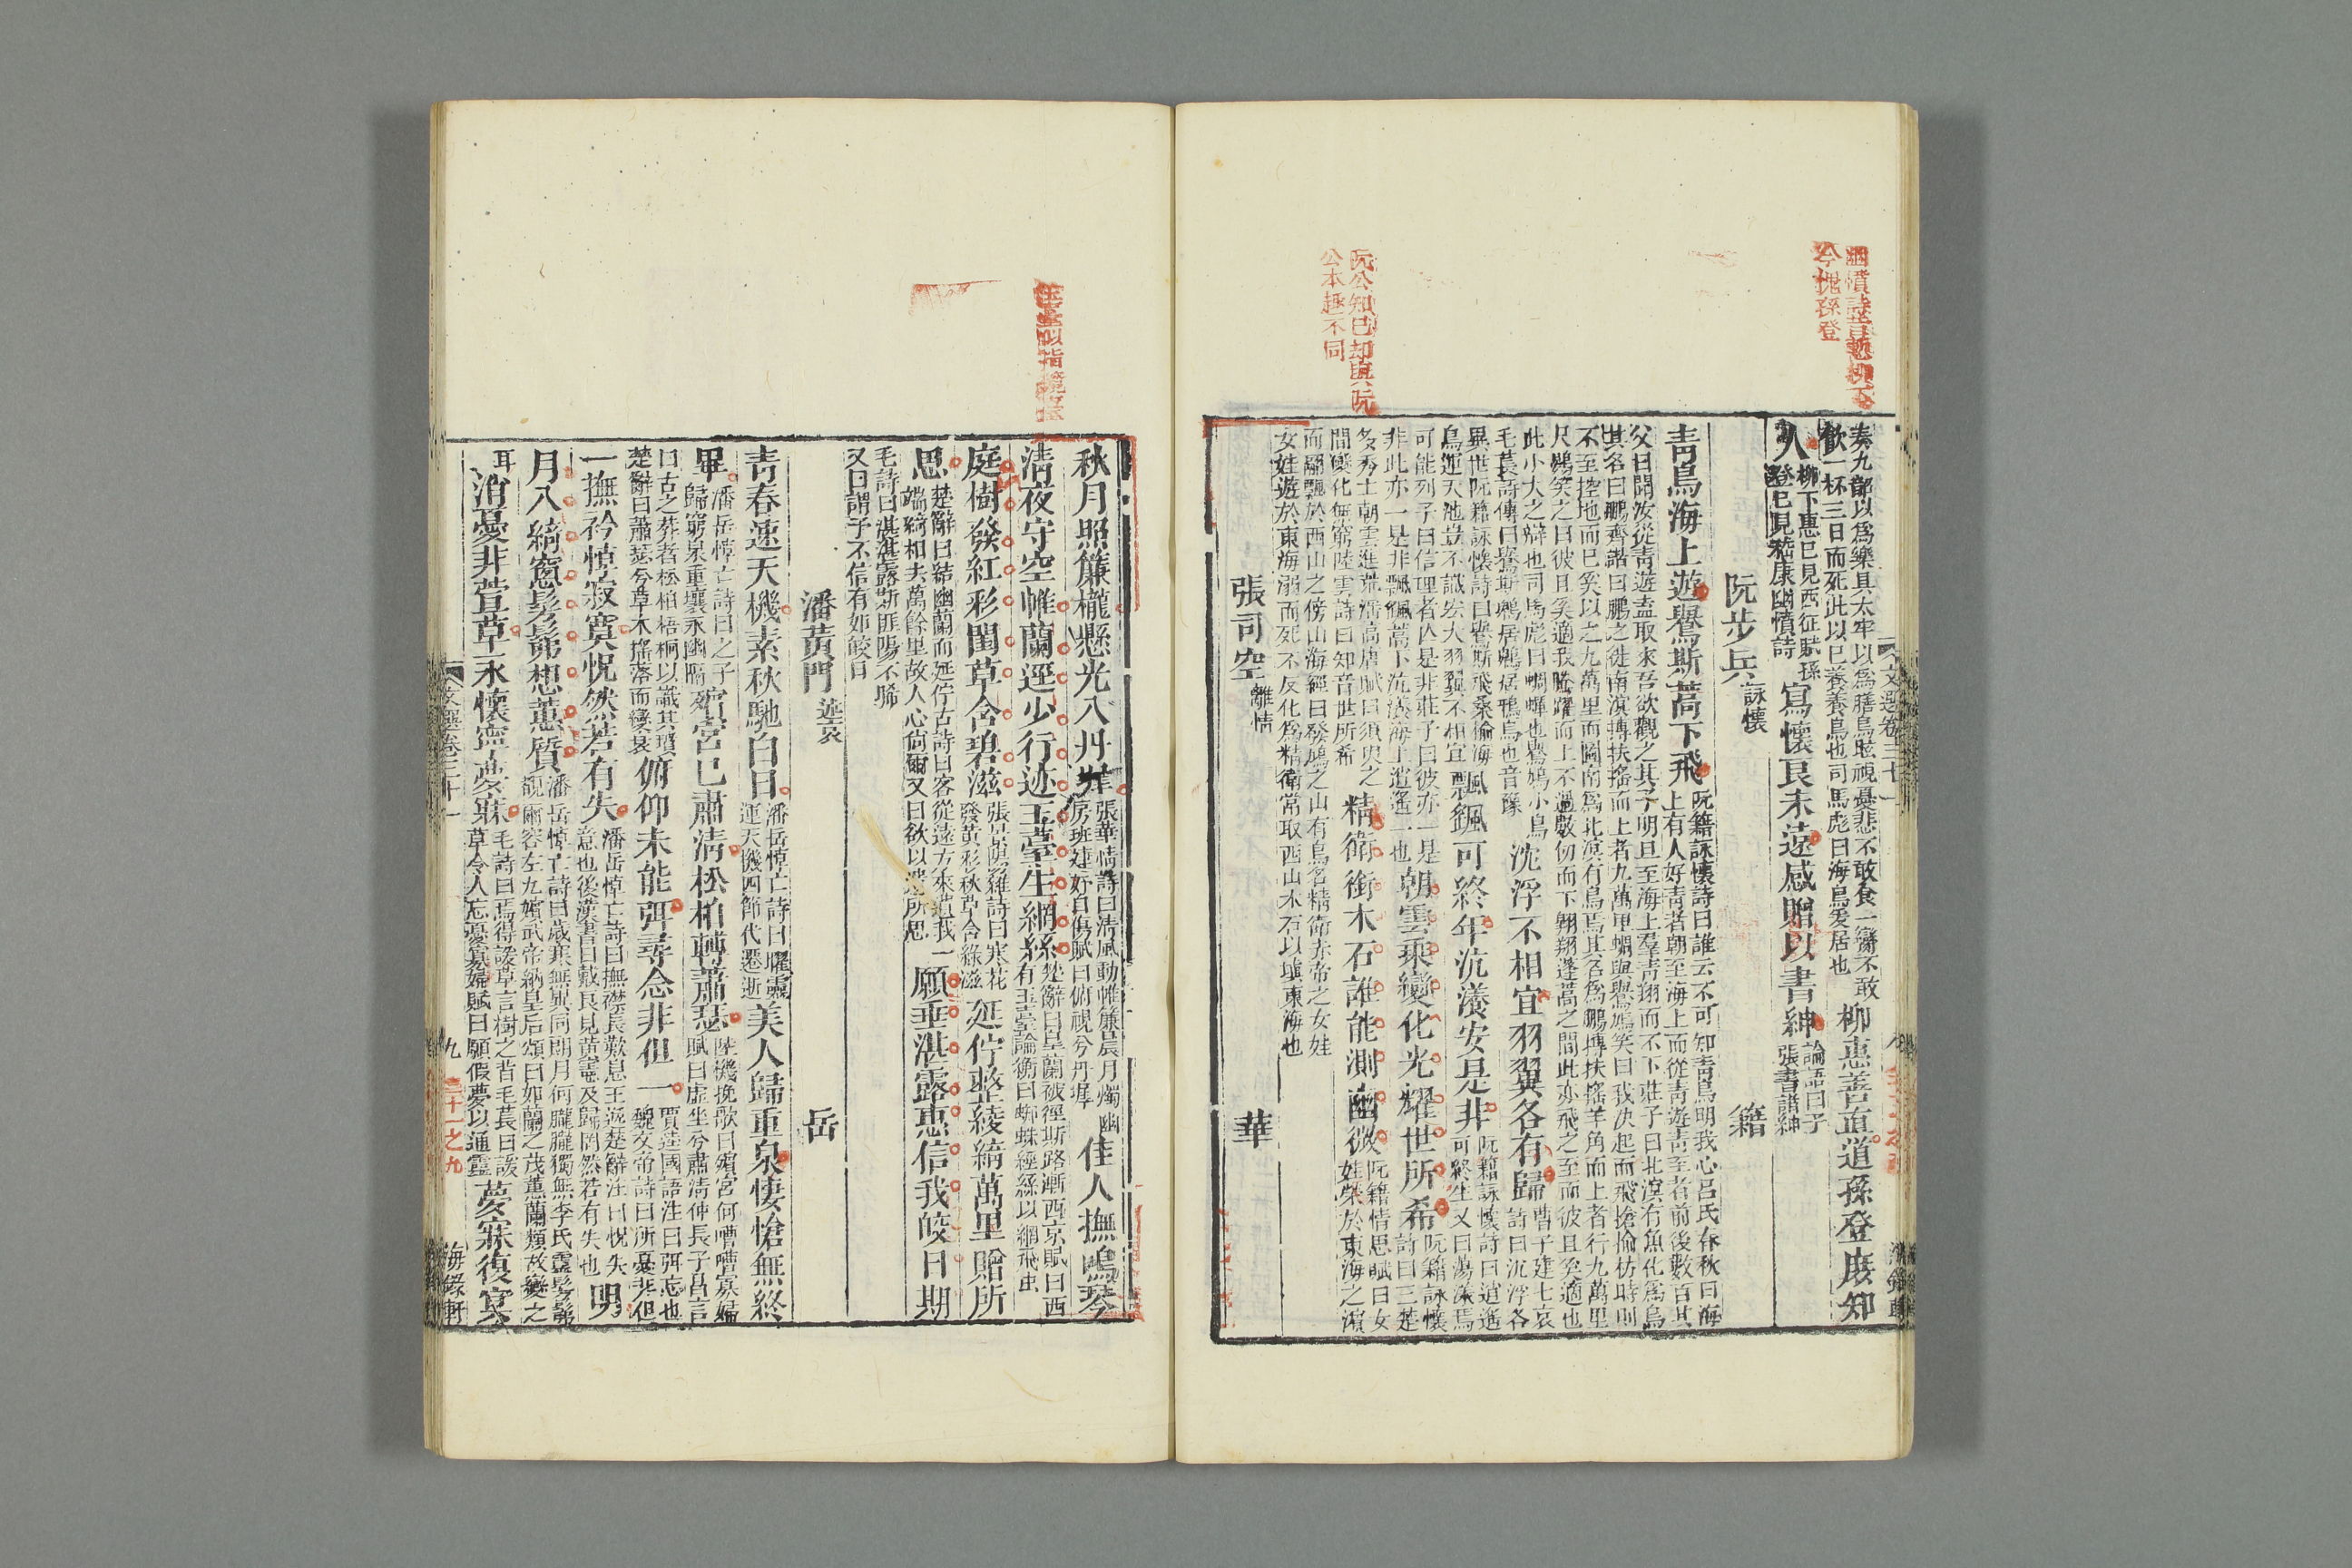 幽憤詩昔慙柳下
今愧孫登
阮公知己却與阮
公本趣不同
奏九韶以爲樂具太牢以爲膳鳥眩視憂悲不敢食一臠不敢
飲一杯三日而死此以己養養鳥也司馬彪曰海鳥爰居也
柳惠善直道孫登庶知
人
柳下惠已見西征賦孫
登已見嵇康幽憤詩
寫懷良未遠感贈以書紳
論語曰子
張書諸紳
阮步兵
詠懷
籍
青鳥海上遊鸒斯蒿下飛
阮籍詠懷詩曰誰云不可知青鳥明我心呂氏春秋曰海
上有人好青者朝至海上而從青遊青至者前後數百其
父曰聞汝從青遊盍取來吾欲觀之其子明旦至海上羣青翔而不下莊子曰北溟有魚化爲鳥
其名曰鵬齊諧曰鵬之徙南溟摶扶搖而上者九萬里蜩與鸒鳩笑曰我決起而飛搶榆枋時則
不至控地而已矣以之九萬里而圖南爲北溟有鳥焉其名爲鵬摶扶搖羊角而上者行九萬里
尺鷃笑之曰彼且奚適我騰躍而上不過數仞而下翱翔蓬蒿之間此亦飛之至而彼且奚適也
此小大之辯也司馬彪曰蜩蟬也鸒鳩小鳥
毛萇詩傳曰鸒斯鵯居鵯居鴉烏也音豫
沈浮不相宜羽翼各有歸
曹子建七哀
詩曰沉浮各
異世阮籍詠懷詩曰鸒斯飛桑榆海
鳥運天池豈不識宏大羽翼不相宜
飄颻可終年沆瀁安是非
阮籍詠懷詩曰逍遙
可終生又曰蕩漾焉
可能列子曰信理者亡是非莊子曰彼亦一是
非此亦一是非飄颻蒿下沆瀁海上逍遙一也
朝雲乘變化光耀世所希
阮籍詠懷
詩曰三楚
多秀士朝雲進荒淫高唐賦曰須臾之
間變化無窮陸雲詩曰知音世所希
精衛銜木石誰能測幽微
阮籍情思賦曰女
娃榮於東海之濱
而翩飄於西山之傍山海經曰發鳩之山有鳥名精衛赤帝之女娃
女娃遊於東海溺而死不反化爲精衛常取西山木石以塡東海也
張司空
離情
華
秋月照簾櫳懸光入丹墀
張華情詩曰清風動帷簾晨月燭幽
房班婕妤自傷賦曰俯視兮丹墀
佳人撫鳴琴
清夜守空帷蘭逕少行迹玉臺生網絲
楚辭曰皋蘭被徑斯路漸西京賦曰西
有玉臺論衡曰蜘蛛經絲以網飛虫
庭樹發紅彩閨草含碧滋
張景陽雜詩曰寒花
發黃彩秋草含綠滋
延佇整綾綺萬里贈所
思
楚辭曰結幽蘭而延佇古詩曰客從遠方來遺我一
端綺相去萬餘里故人心尙爾又曰欲以遺所思
願垂湛露惠信我皎日期
毛詩曰湛湛露斯匪陽不晞
又曰謂予不信有如皎日
潘黃門
述哀
岳
青春速天機素秋馳白日
潘岳悼亡詩曰曜靈
運天機四節代遷逝
美人歸重泉悽愴無終
畢
潘岳悼亡詩曰之子
歸窮泉重壤永幽隔
殯宮已肅淸松柏轉蕭瑟
陸機挽歌曰殯宮何嘈嘈寡婦
賦曰虛坐兮肅淸仲長子昌言
曰古之葬者松柏梧桐以識其墳
楚辭曰蕭瑟兮草木搖落而變衰
俯仰未能弭尋念非但一
賈逵國語注曰弭忘也
魏文帝詩曰所憂非但
一撫衿悼寂寞怳然若有失
潘岳悼亡詩曰撫襟長歎息王逸楚辭注曰怳失
意也後漢書曰戴良見黃憲及歸罔然若有失也
明
月入綺窻髣髴想蕙質
潘岳悼亡詩曰歲寒無與同朗月何朧朧獨無李氏靈髣髴
覩爾容左九嬪武帝納皇后頌曰如蘭之茂蕙蘭類故變之
耳
消憂非萱草永懷寄夢寐
毛詩曰焉得諼草言樹之背毛萇曰諼
草令人忘憂寡婦賦曰願假夢以通靈
夢寐復冥
文選卷三十一
九
三十一之九
海錄軒